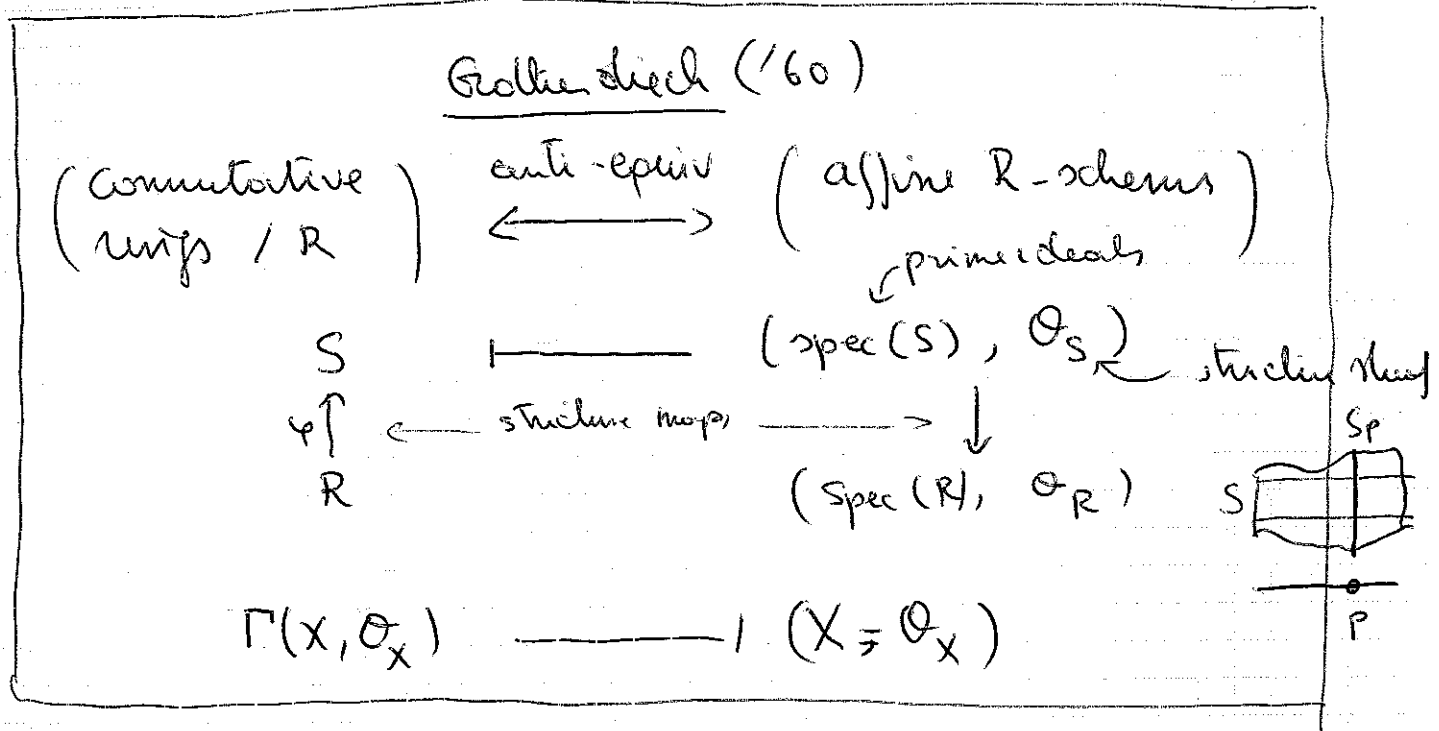 Grothendieck ('60)
( commutative rings / R ) anti-equiv ⟷ ( affine R-schemes )
prime ideals
S ⊢— (spec(S), O_S) structure sheaf
φ↑ ← structure maps → ↓
R (Spec(R), O_R)
S_P
S
P
Γ(X, O_X) —| (X, O_X)